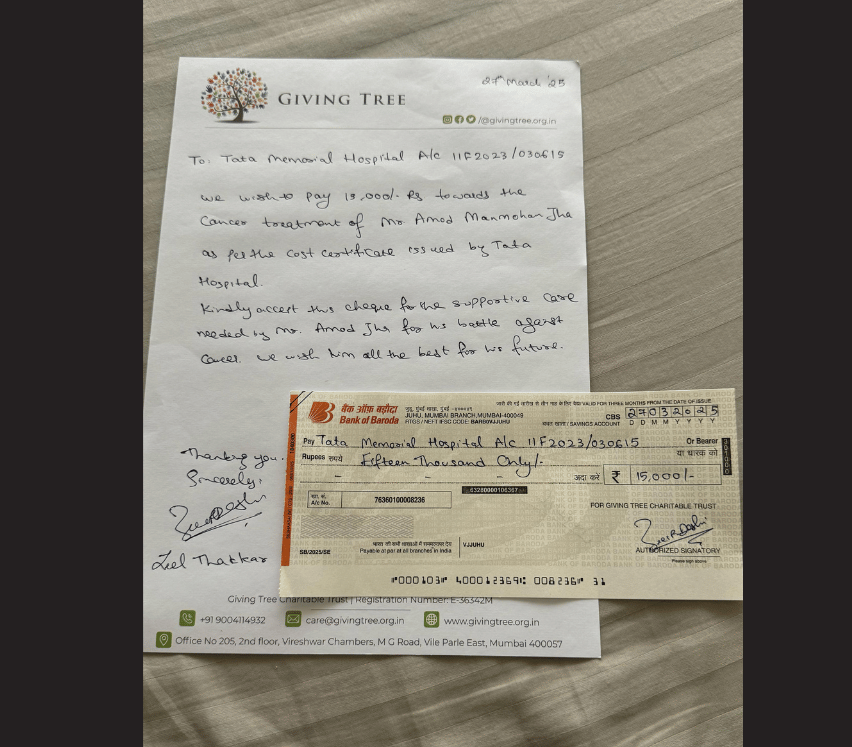 27th March '25
GIVING TREE
/@givingtree.org.in
To: Tata Memorial Hospital A/c 11F2023/030615
We wish to pay 15,000/- Rs towards the
Cancer treatment of Mr Amod Manmohan Jha
as per the cost certificate issued by Tata
Hospital.
Kindly accept this cheque for the supportive care
needed by Mr. Amod Jha for his battle against
Cancer. We wish him all the best for his future.
Thanking you.
Sincerely,
Zeel Thakkar
बैंक ऑफ़ बड़ौदा
Bank of Baroda
JUHU, MUMBAI BRANCH, MUMBAI-400049
RTGS / NEFT IFSC CODE: BARB0VJJUHU
VALID FOR THREE MONTHS FROM THE DATE OF ISSUE
CBS 27032025
SAVINGS ACCOUNT D D M M Y Y Y Y
Pay Tata Memorial Hospital A/c 11F2023/030615 Or Bearer
या धारक को
Rupees रुपये Fifteen Thousand Only/-
अदा करें ₹ 15,000/-
A/c No. 76360100008236
FOR GIVING TREE CHARITABLE TRUST.
Payable at par at all branches in India
VJJUHU
SB/2025/SE
AUTHORIZED SIGNATORY
Please sign above
000103 400012369 008236 31
Giving Tree Charitable Trust | Registration Number: E-36342M
+91 9004114932 care@givingtree.org.in www.givingtree.org.in
Office No 205, 2nd floor, Vireshwar Chambers, M G Road, Vile Parle East, Mumbai 400057